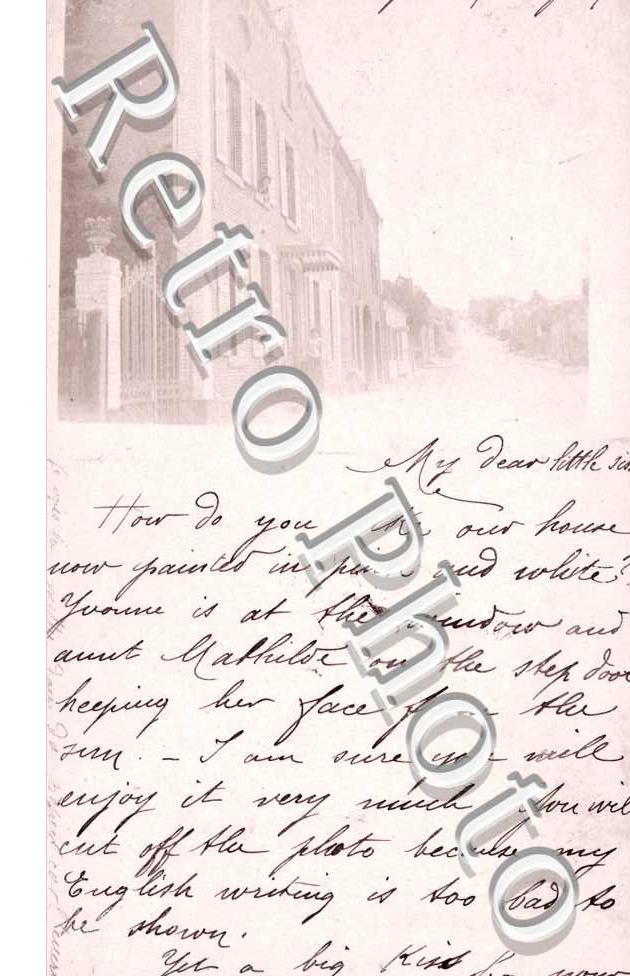 My dear little
How do you our house
now painted in and white?
Yvonne is at the window and
aunt Mathilde on the step door
keeping her face from the
sun. – I am sure you will
enjoy it very much. You will
cut off the photo because my
English writing is too bad to
be shown.
Yet a big Kiss
Retro Photo